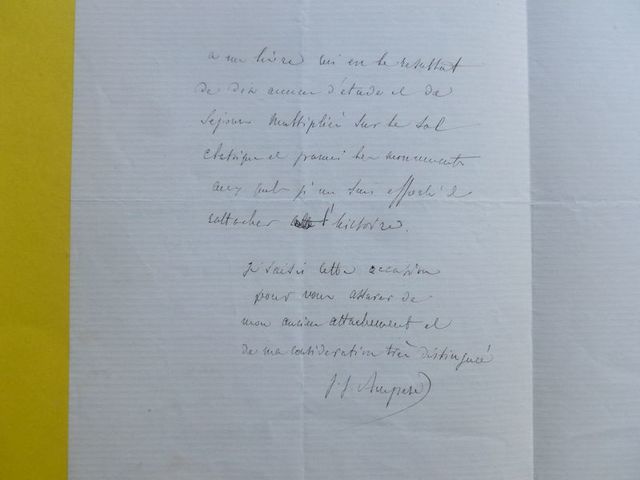 a un livre qui est le resultat
de dix années d'étude et de
sejours multipliés sur le sol
classique et parmi les monuments
auxquels je me suis efforcé de
rattacher l'histoire.
Je saisis cette occasion
pour vous assurer de
mon ancien attachement et
de ma consideration très distinguée
J. J. Ampère